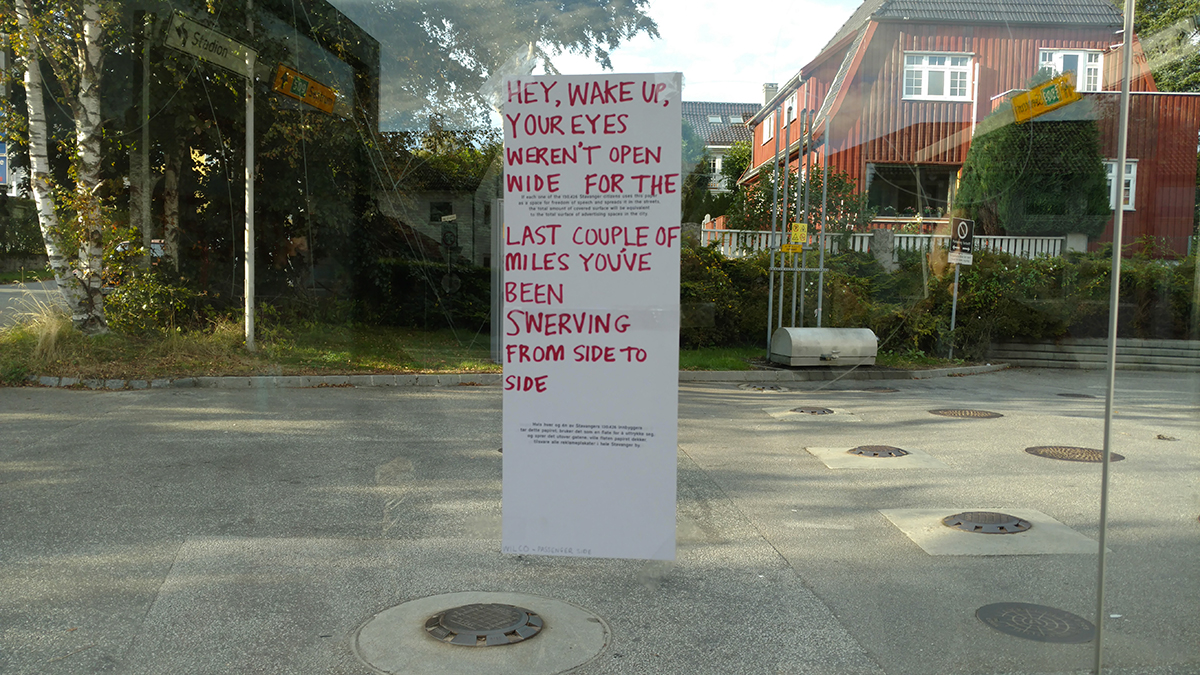 Stadion
HEY, WAKE UP,
YOUR EYES
WEREN'T OPEN
WIDE FOR THE
If each one of the Stavanger citizens uses this paper
as a space for freedom of speech and spreads it in the streets,
the total amount of covered surface will be equivalent
to the total surface of advertising spaces in the city
LAST COUPLE OF
MILES YOU'VE
BEEN
SWERVING
FROM SIDE TO
SIDE
Hvis hver og en av Stavangers innbyggere
tar dette papiret, bruker det som en flate for å uttrykke seg,
og sprer det utover gatene, vil
tilsvare alle reklameplakater i hele Stavanger by.
WILCO - PASSENGER SIDE